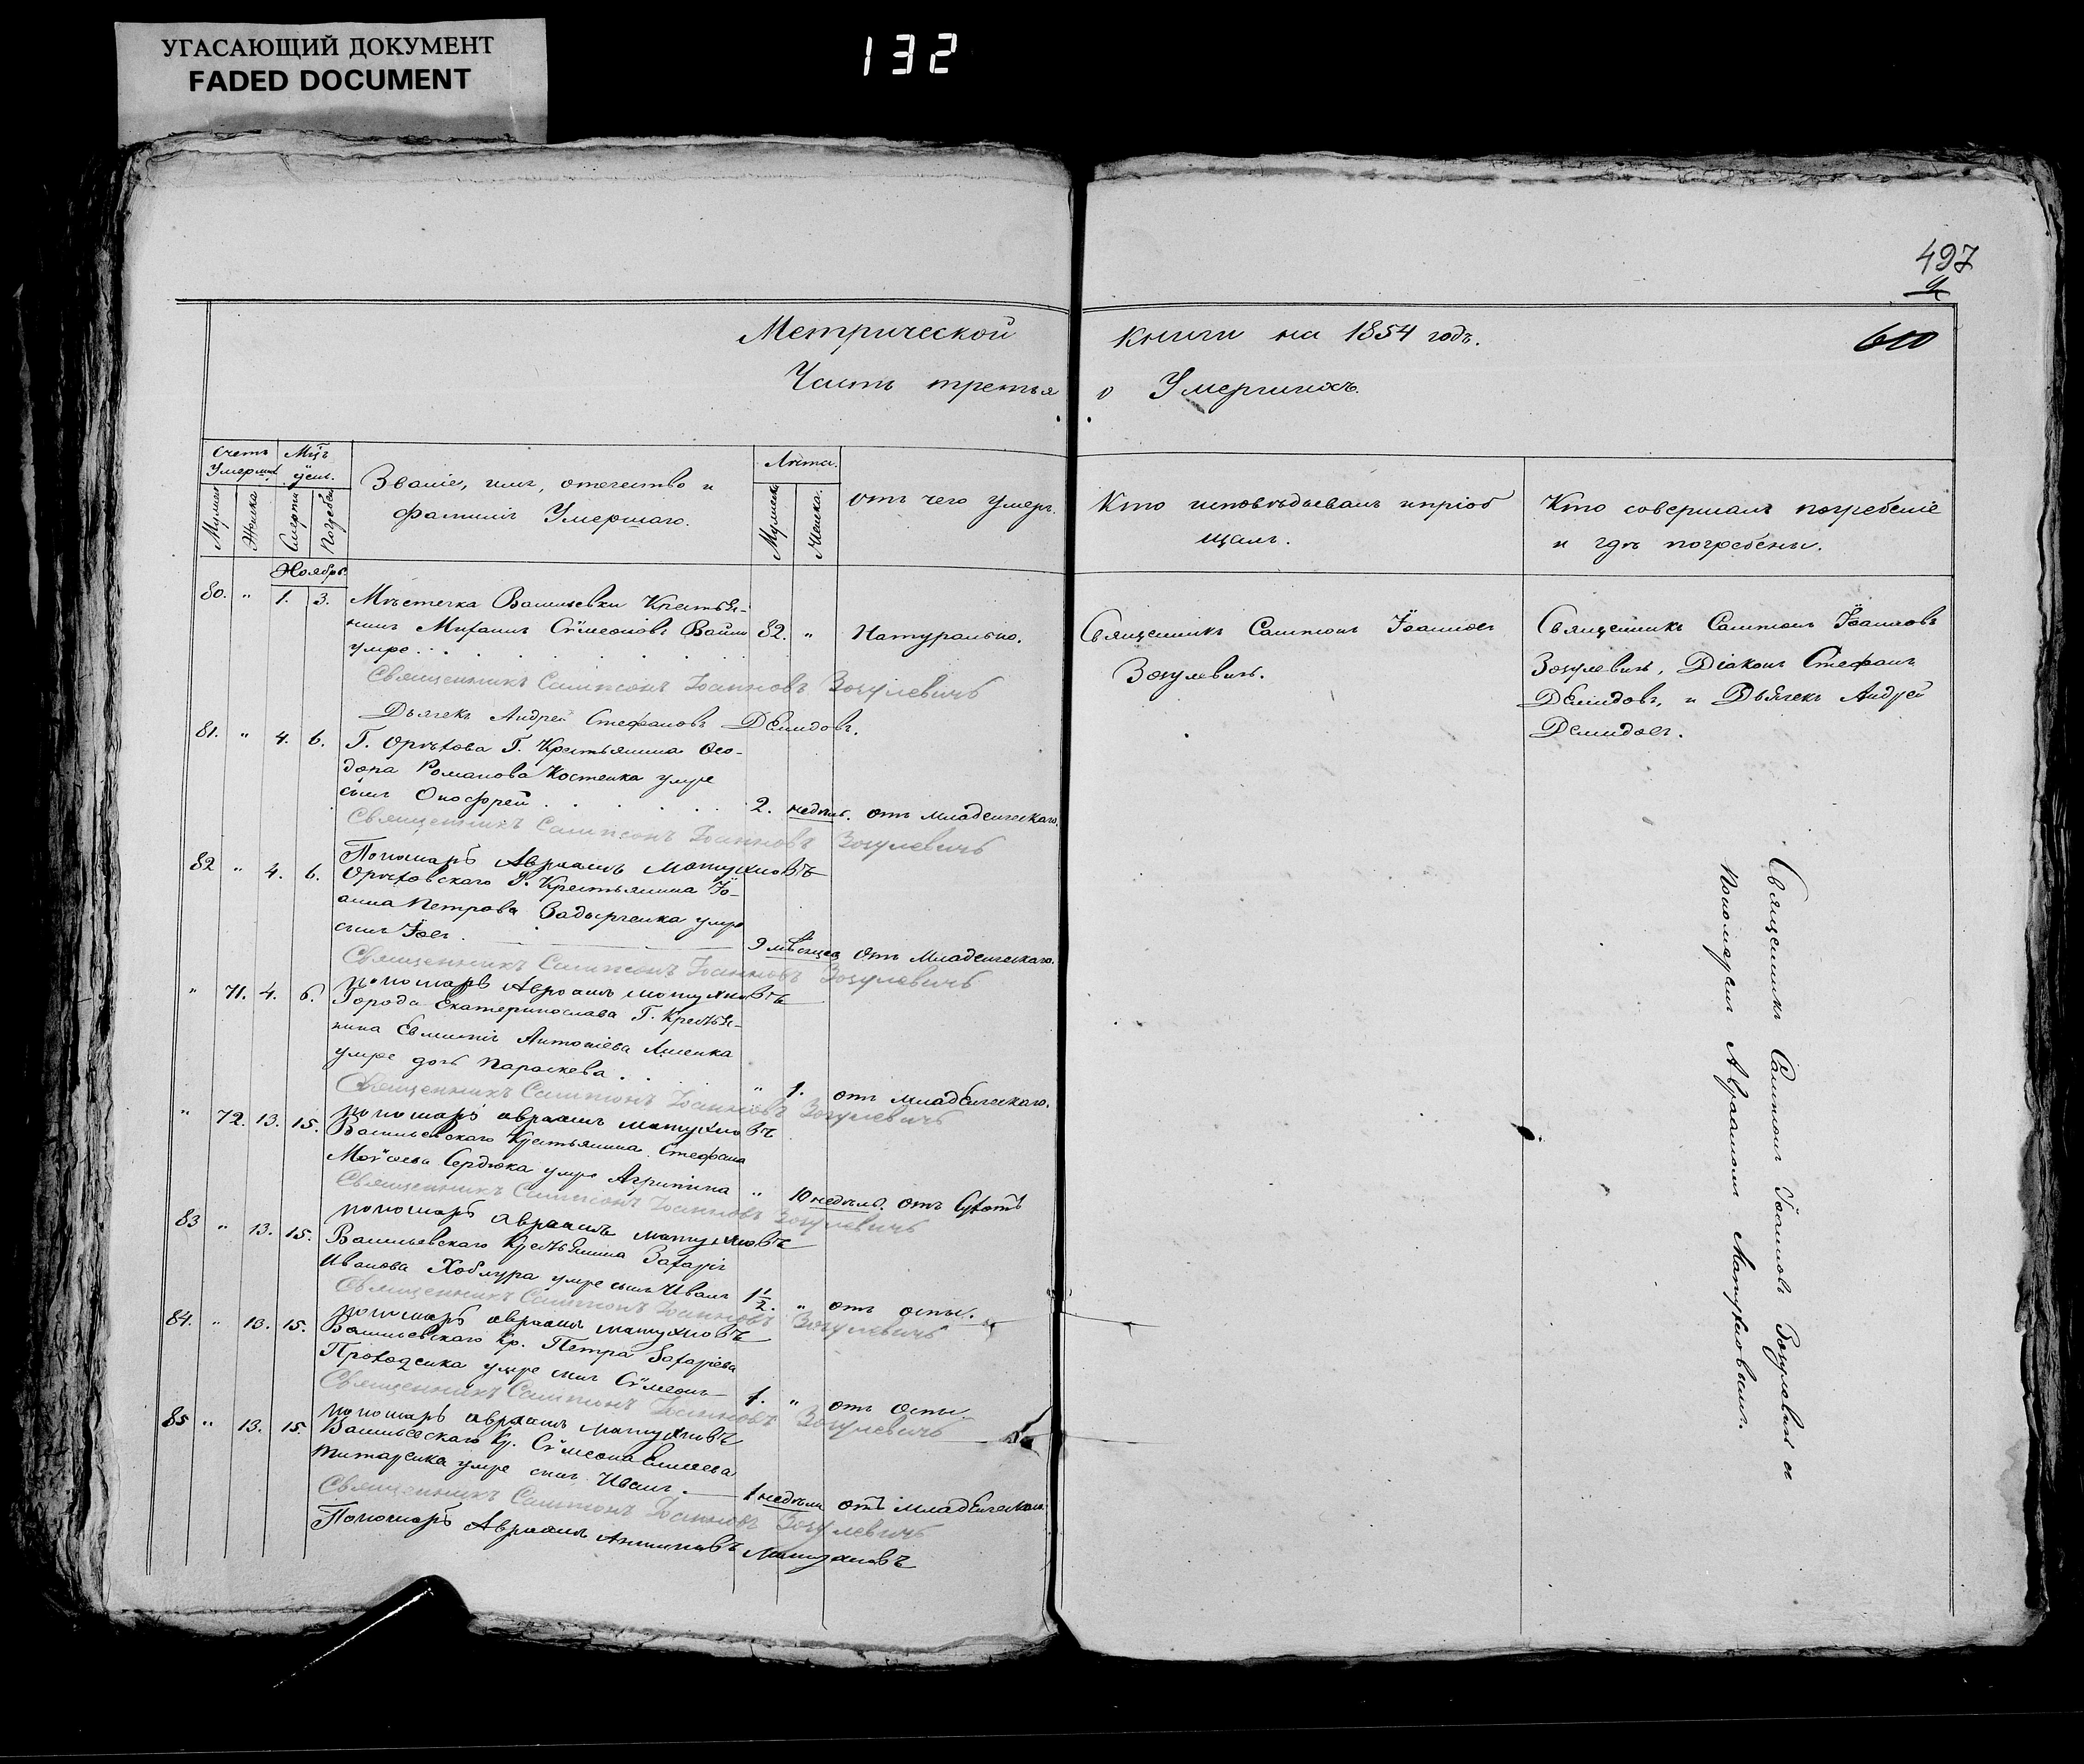 УГАСАЮЩИЙ ДОКУМЕНТ
FADED DOCUMENT
132
497
600
Метрической книги на 1854 годъ.
Часть третья о Умершихъ.
Счетъ Умершихъ
Мцъ и день.
Званіе, имя, отечество и фамилія Умершаго.
Лѣта.
отъ чего умеръ.
Кто исповѣдывалъ и пріобщалъ.
Кто совершалъ погребеніе и гдѣ погребены.
Мужеска
Женска
Смерти
Погребен
Мужеска
Женска.
Ноябрь
80. " 1. 3. Мѣстечка Васильевки Крестья-
нинъ Михаилъ Сѵмеоновъ 82. " Натурально.
умре
Священникъ Сампсонъ Іоанновъ Зозулевичъ
Дьячекъ Андрей Стефановъ Демидовъ.
Священникъ Сампсонъ Іоанновъ
Зозулевичъ.
Священникъ Сампсонъ Іоанновъ
Зозулевичъ, Діаконъ Стефанъ
Демидовъ, и Дьячекъ Андрей
Демидовъ.
81. " 4. 6. Г. Орѣхова Г. Крестьянина Ѳео-
дора Романова Костенка умре
сынъ Онофрей 2. недѣль. отъ младенческаго.
Священникъ Сампсонъ Іоанновъ Зозулевичъ
Пономарь Авраамъ Матухновъ
82 " 4. 6. Орѣховскаго Г. Крестьянина Іо-
анна Петрова умре
сынъ 9 мѣсяцев отъ Младенческаго.
Священникъ Сампсонъ Іоанновъ Зозулевичъ
пономарь Авраамъ матухновъ
" 71. 4. 6. Города Екатеринослава Г. Крестья-
нина Евмения Антоніева
умре дочь Параскева. " 1. отъ младенческаго.
Священникъ Сампсонъ Іоанновъ Зозулевичъ
пономарь авраамъ матухновъ
" 72. 13. 15. Васильевскаго Крестьянина Стефана
Моѵсеева Сердюка умре Агрипина " 10 недѣль. отъ Сухотъ
Священникъ Сампсонъ Іоанновъ Зозулевичъ
пономарь авраамъ матухновъ
83 " 13. 15. Васильевскаго Крестьянина Захарія
Иванова умре сынъ Иванъ 1½. " отъ оспы.
Священникъ Сампсонъ Іоанновъ Зозулевичъ
пономарь авраамъ матухновъ
84. " 13. 15. Васильевскаго Кр. Петра Захаріева
умре сынъ Сѵмеонъ 1. " отъ оспы.
Священникъ Сампсонъ Іоанновъ Зозулевичъ
пономарь авраамъ матухновъ
85 " 13. 15. Васильевскаго Кр. Сѵмеона Елисеева
Титаренка умре сынъ Иванъ. 1 недѣли отъ младенческаго.
Священникъ Сампсонъ Іоанновъ Зозулевичъ
Пономарь Авраамъ Матухновъ
Священникъ Сампсонъ Іоанновъ Зозулевичъ съ
Пономаремъ Авраамомъ Матухновымъ.